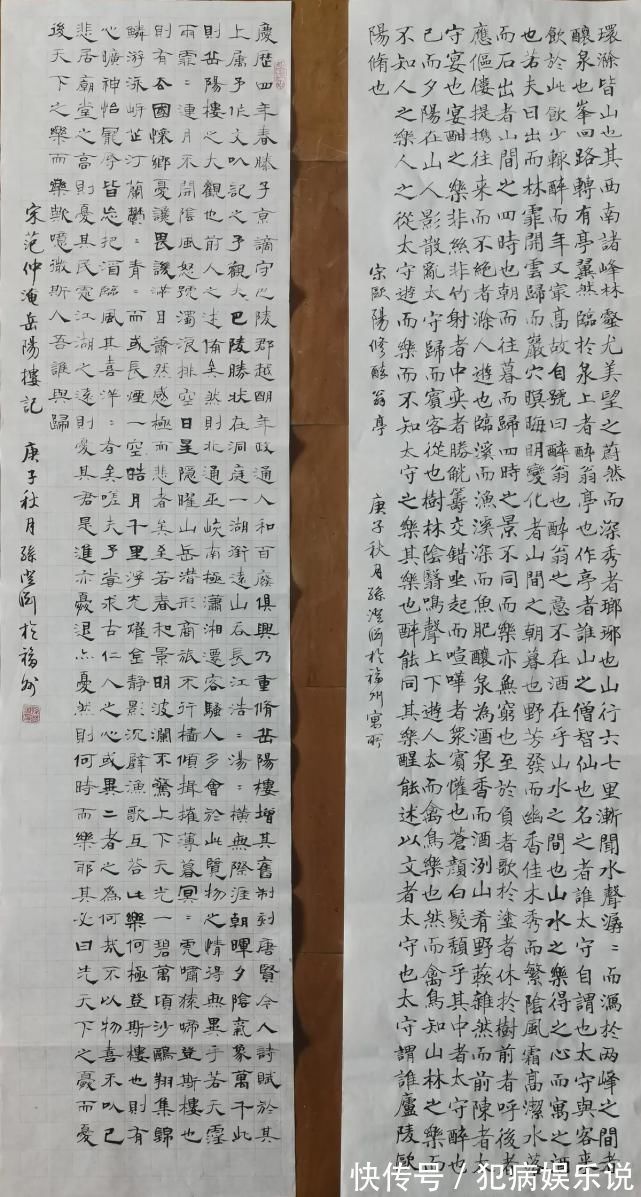 環滁皆山也其西南諸峰林壑尤美望之蔚然而深秀者瑯琊也山行六七里漸聞水聲潺〻而瀉於兩峰之間者
釀泉也峯回路轉有亭翼然臨於泉上者醉翁亭也作亭者誰山之僧智仙也名之者誰太守自謂也太守與客來
飲於此飲少輒醉而年又最高故自號曰醉翁也醉翁之意不在酒在乎山水之間也山水之樂得之心而寓之酒
也若夫日出而林霏開雲歸而巖穴暝晦明變化者山間之朝暮也野芳發而幽香佳木秀而繁陰風霜高潔水落
而石出者山間之四時也朝而往暮而歸四時之景不同而樂亦無窮也至於負者歌於塗者休於樹前者呼後者
應傴僂提攜往來而不絕者滁人遊也臨溪而漁溪深而魚肥釀泉為酒泉香而酒洌山肴野蔌雜然而前陳者太
守宴也宴酣之樂非絲非竹射者中奕者勝觥籌交錯坐起而喧嘩者衆賓懽也蒼顏白髮頹乎其中者太守醉也
已而夕陽在山人影散亂太守歸而賓客從也樹林陰翳鳴聲上下遊人去而禽鳥樂也然而禽鳥知山林之樂而
不知人之樂人之從太守遊而樂而不知太守之樂其樂也醉能同其樂醒能述以文者太守也太守謂誰廬陵歐
陽脩也
宗歐陽修醉翁亭 庚子秋月孫於福州寓所
慶歷四年春滕子京謫守巴陵郡越明年政通人和百廢俱興乃重脩岳陽樓增其舊制刻唐賢今人詩賦於其
上属予作文以記之予觀夫巴陵勝状在洞庭一湖銜遠山吞長江浩〻湯〻橫無際涯朝暉夕陰氣象萬千此
則岳陽樓之大觀也前人之述備矣然則北通巫峽南極瀟湘遷客騷人多會於此覽物之情得無異乎若夫霪
雨霏〻連月不開陰風怒號濁浪排空日星隱曜山岳潜形商旅不行檣傾楫摧薄暮冥〻虎嘯猿啼登斯樓也
則有去國懷鄉憂讒畏譏滿目蕭然感極而悲者矣至若春和景明波瀾不驚上下天光一碧萬頃沙鷗翔集錦
鱗游泳岸芷汀蘭鬱〻青〻而或長煙一空皓月千里浮光耀金静影沉璧漁歌互答此樂何極登斯樓也則有
心曠神怡寵辱皆忘把酒臨風其喜洋〻者矣嗟夫予嘗求古仁人之心或異二者之為何哉不以物喜不以己
悲居廟堂之高則憂其民處江湖之遠則憂其君是進亦憂退亦憂然則何時而樂耶其必曰先天下之憂而憂
後天下之樂而樂歟噫微斯人吾誰與歸
宋范仲淹岳陽樓記 庚子秋月孫於福州
快传号/犯病娱乐说